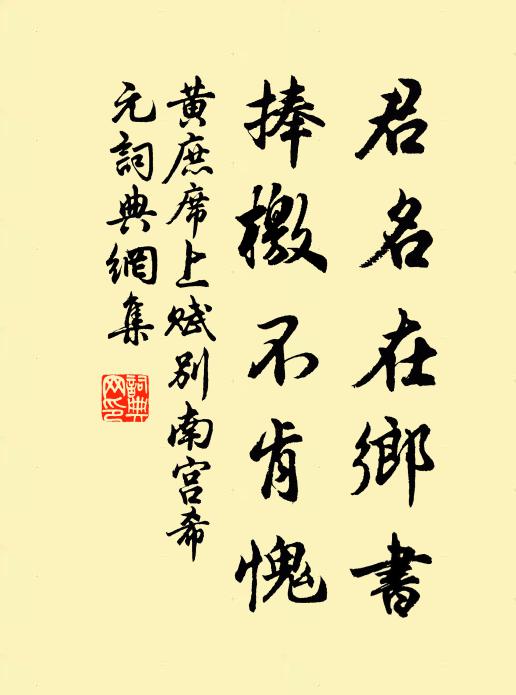 君名在鄉書
捧檄不肯愧
黃庶席上賦別南宮希
元詞典網集
詞典
网印